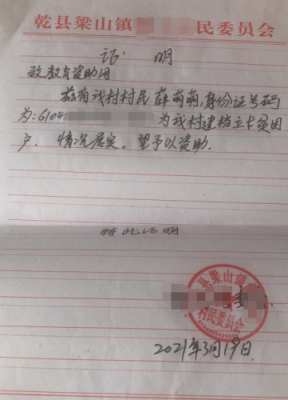 乾县梁山镇 民委员会
证 明
致教育资助网
兹有我村村民薛萌萌,身份证号码
为:6104 为我村建档立卡贫困
户,情况属实,望予以资助。
特此证明.
县梁山镇
村民委员会
2021年3月19日.